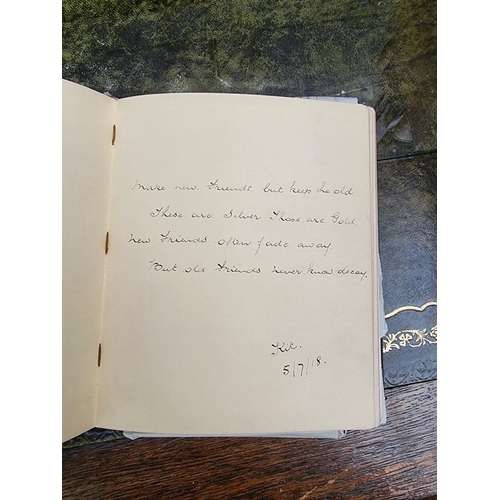 Make new friends, but keep the old
These are Silver Those are Gold,
New friends often fade away
But old friends never know decay.
Kit.
5/7/18.